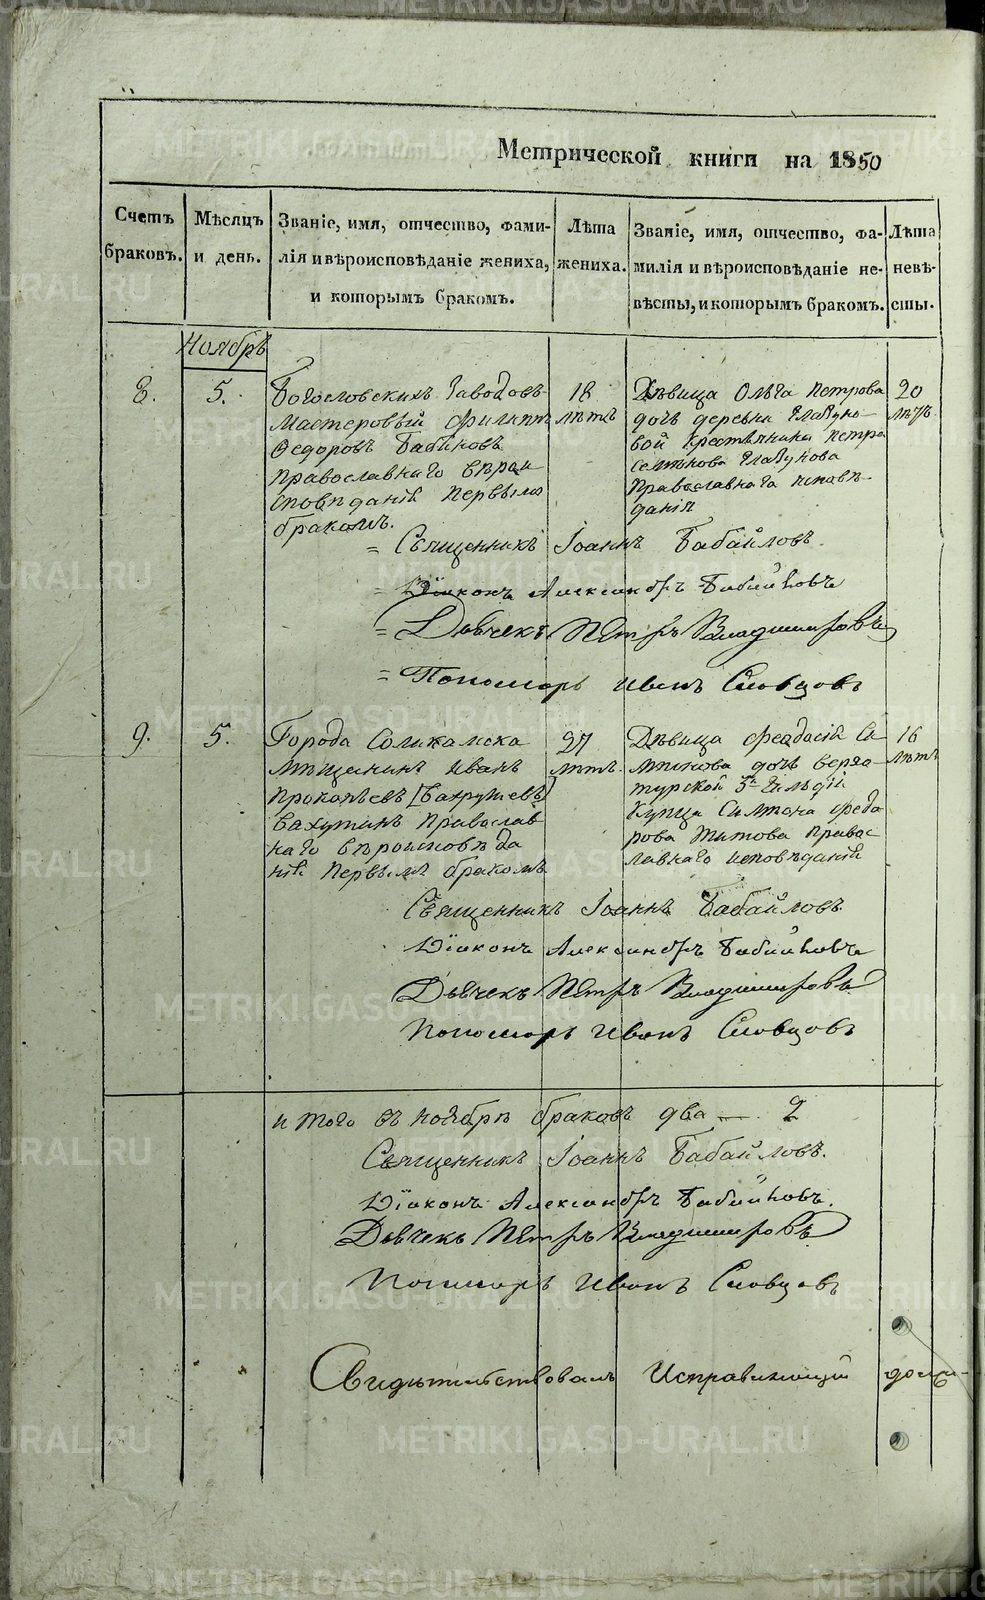 Метрической книги на 1850
Счетъ браковъ.
Мѣсяцъ и день.
Званіе, имя, отчество, фами-
лія и вѣроисповѣданіе жениха,
и которымъ бракомъ.
Лѣта
жениха.
Званіе, имя, отчество, фа-
милія и вѣроисповѣданіе не-
вѣсты, и которымъ бракомъ.
Лѣта
невѣ-
сты.
Ноябрь
8.
5.
Богословскихъ Заводовъ
мастеровый Филиппъ
Ѳедоровъ Бабиновъ
православнаго вѣрои
сповѣданій первымъ
бракомъ.
18
лѣтъ
Дѣвица Ольга Петрова
дочь деревни Глазуно-
вой крестьянина Петра
Глазунова
Православнаго исповѣ-
данія
20
лѣтъ
= Священникъ Іоаннъ Бабайловъ.
= Діаконъ Александръ
= Дьячекъ Петръ Владимировъ
= Пономарь Иванъ Словцовъ
9.
5.
Города Соликамска
мѣщанинъ Иванъ
Прокопьевъ [Вахрушевъ]
православ
наго вѣроисповѣда
ній первымъ бракомъ
27
лѣтъ.
Дѣвица Си
дочь Верхо-
турской 3й гильдіи
купца Симеона Федо
рова Титова Правос
лавнаго исповѣданій
16
лѣтъ
Священникъ Іоаннъ Бабайловъ.
Діаконъ Александръ
Дьячекъ Петръ Владимировъ
Пономарь Иванъ Словцовъ
итого въ ноябрѣ браковъ два — 2
Священникъ Іоаннъ Бабайловъ.
Діаконъ Александръ
Дьячекъ Петръ Владимировъ
Пономарь Иванъ Словцовъ
Свидѣтельствовалъ Исправляющій
METRIKI.GASO-URAL.RU